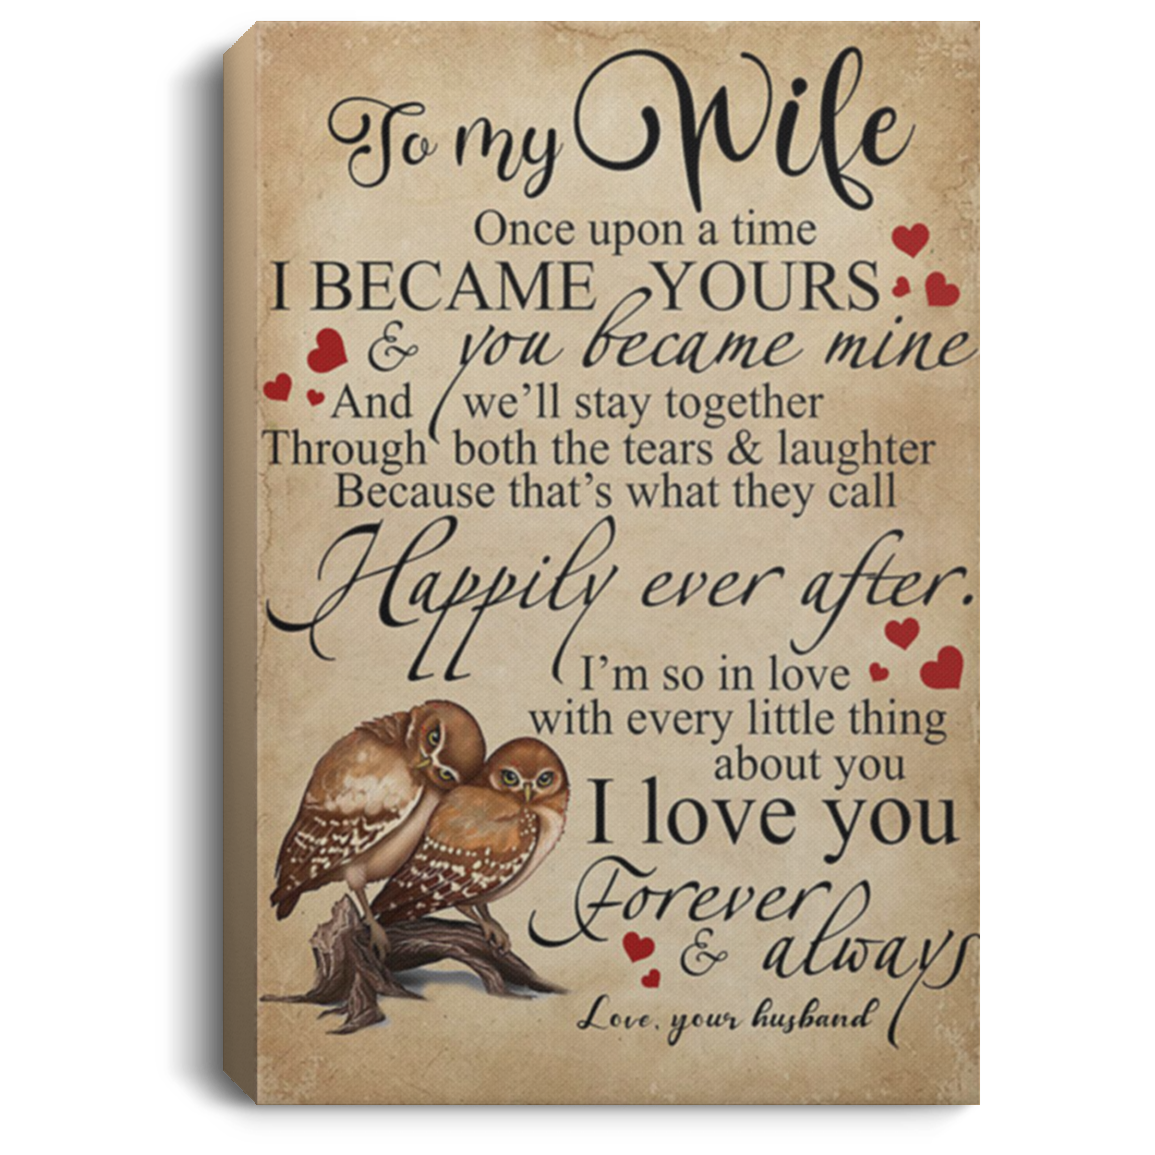 To my Wife
Once upon a time
I BECAME YOURS
& you became mine
And we'll stay together
Through both the tears & laughter
Because that's what they call
Happily ever after.
I'm so in love
with every little thing
about you
I love you
Forever
& always
Love, your husband